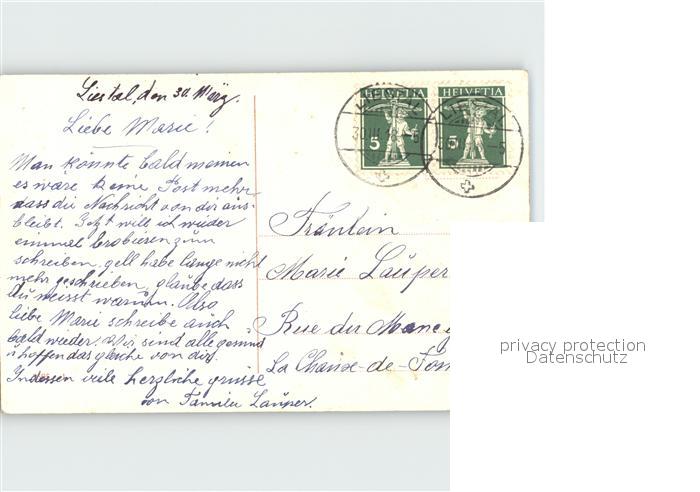 Liestal, den 30. März.
Liebe Marie!
Man könnte bald meinen
es wäre keine Post mehr
dass die Nachricht von dir aus-
bleibt. Jetzt will ich wieder
einmal brobieren zum
schreiben, gell habe lange nicht
mehr geschrieben, glaube dass
du weisst warum. Also
liebe Marie schreibe auch
bald wieder. Wir sind alle gesund
u hoffen das gleiche von dir.
Indessen viele herzliche grüsse
von Familie Lauper.
HELVETIA HELVETIA
5 5
Fräulein
Marie Lauper
Rue du
La Chaux-de-Fon
privacy protection
Datenschutz